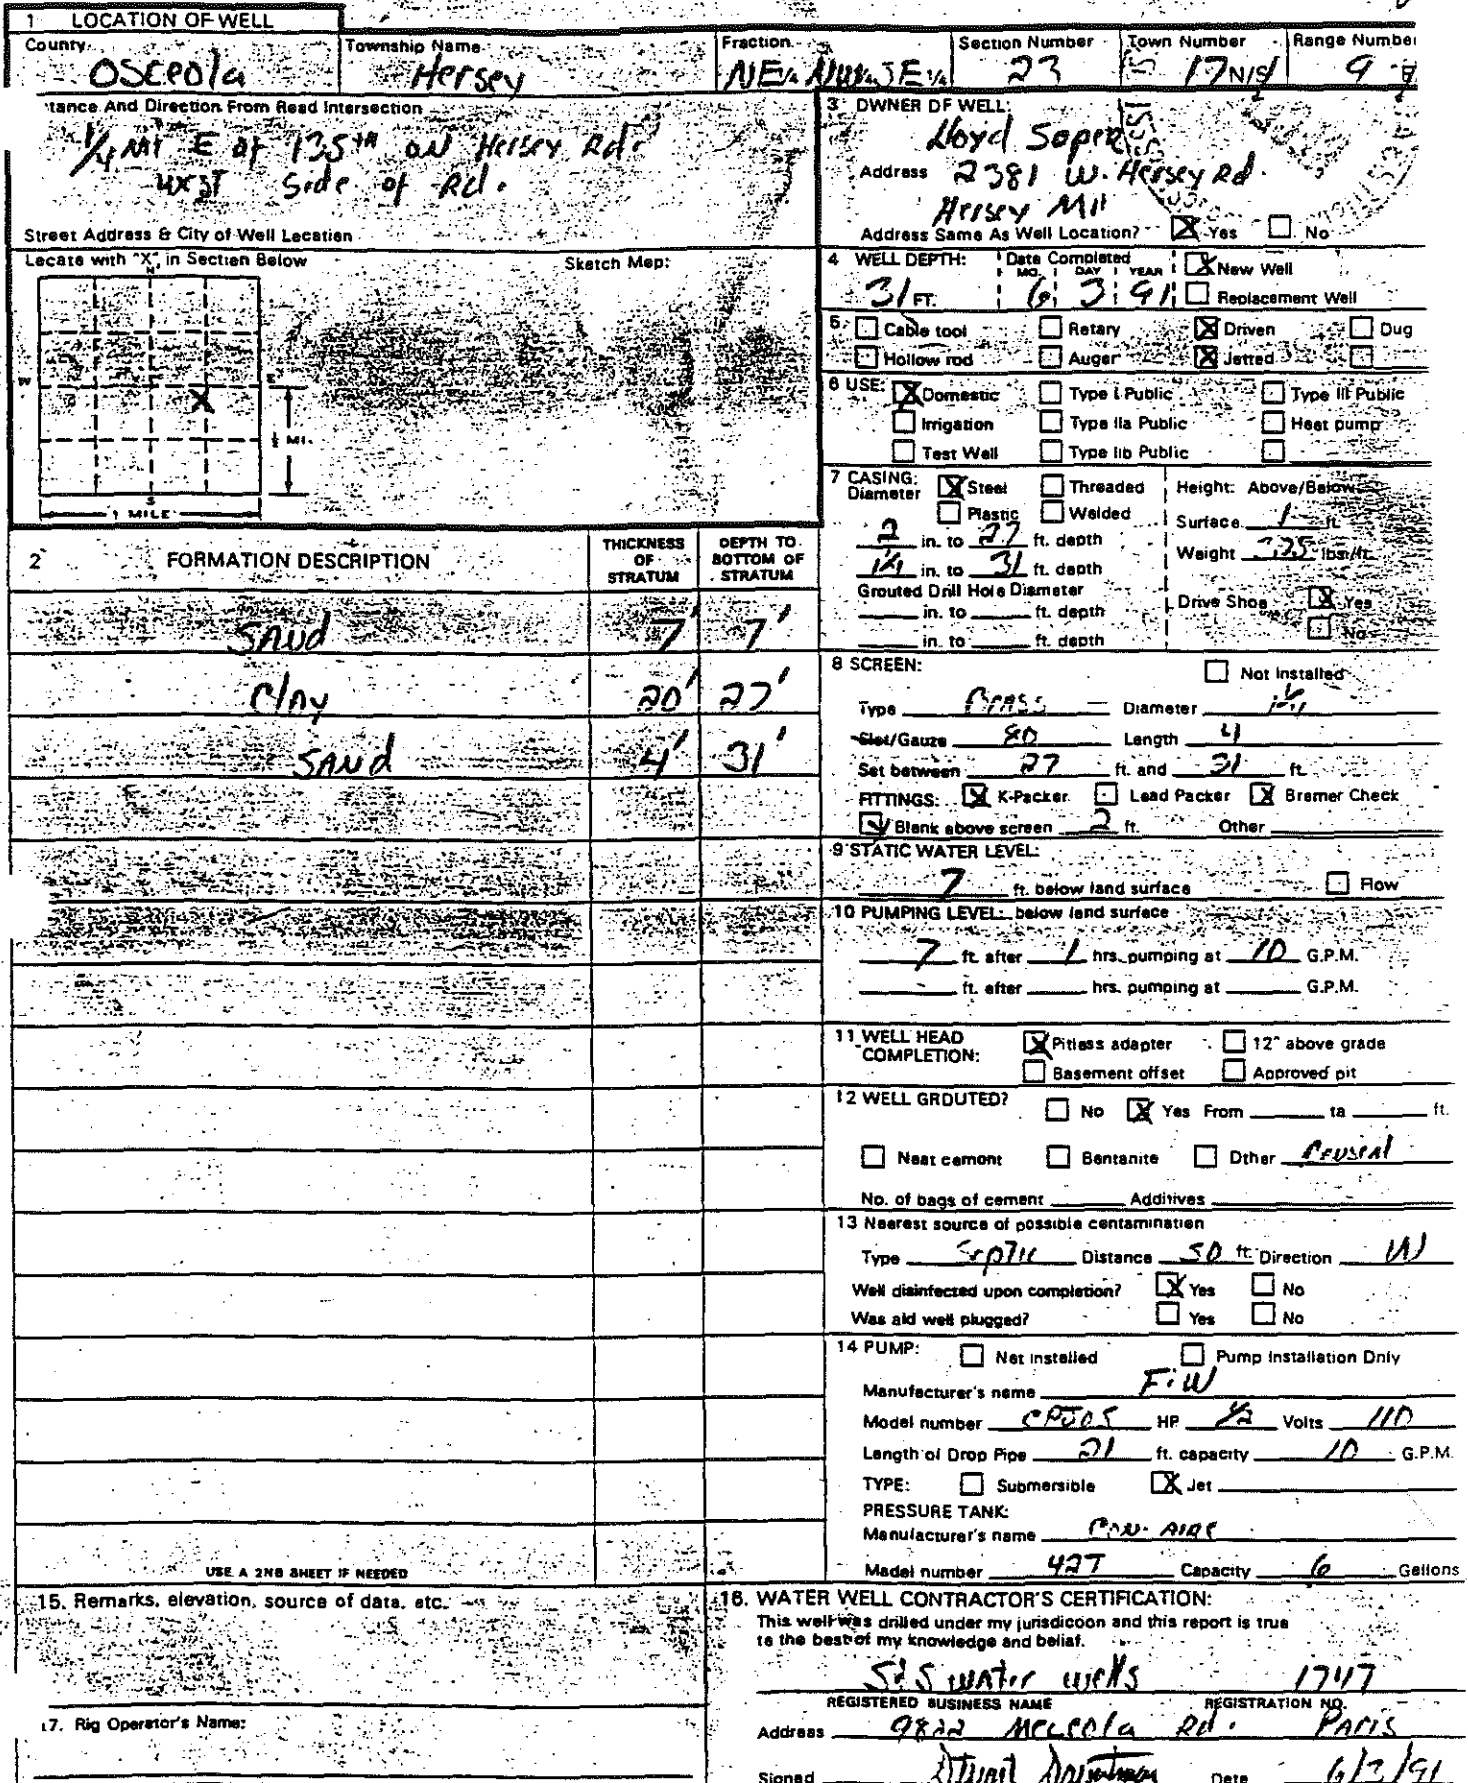 1 LOCATION OF WELL
County Township Name Fraction Section Number Town Number Range Number
Osceola Hersey NE¼ NW¼ SE¼ 23 17 N/S 9
tance And Direction From Road Intersection
¼ Mi E of 135th on Hersey Rd.
west Side of Rd.
Street Address & City of Well Location
3 OWNER OF WELL:
Lloyd Soper
Address 2381 W. Hersey Rd.
Hersey Mi
Address Same As Well Location? X Yes No
Locate with "X" in Section Below Sketch Map:
N
W X E
½ MI.
S
1 MILE
4 WELL DEPTH: 31 FT. Date Completed MO. 6 DAY 3 YEAR 91 X New Well
Replacement Well
5 Cable tool Rotary X Driven Dug
Hollow rod Auger X Jetted
6 USE: X Domestic Type I Public Type III Public
Irrigation Type IIa Public Heat pump
Test Well Type IIb Public
7 CASING: X Steel Threaded Height: Above/Below
Diameter Plastic Welded Surface 1 ft.
2 in. to 27 ft. depth Weight lbs/ft.
1¼ in. to 31 ft. depth
Grouted Drill Hole Diameter Drive Shoe X Yes
in. to ft. depth No
in. to ft. depth
2 FORMATION DESCRIPTION THICKNESS OF STRATUM DEPTH TO BOTTOM OF STRATUM
SAND 7' 7'
Clay 20' 27'
SAND 4' 31'
USE A 2ND SHEET IF NEEDED
8 SCREEN: Not Installed
Type Brass Diameter 1¼
Slot/Gauze 80 Length 4
Set between 27 ft. and 31 ft.
FITTINGS: X K-Packer Lead Packer X Bremer Check
X Blank above screen 2 ft. Other
9 STATIC WATER LEVEL:
7 ft. below land surface Flow
10 PUMPING LEVEL: below land surface
7 ft. after 1 hrs. pumping at 10 G.P.M.
ft. after hrs. pumping at G.P.M.
11 WELL HEAD COMPLETION: X Pitless adapter 12" above grade
Basement offset Approved pit
12 WELL GROUTED? No X Yes From to ft.
Neat cement Bentonite Other
No. of bags of cement Additives
13 Nearest source of possible contamination
Type Septic Distance 50 ft. Direction W
Well disinfected upon completion? X Yes No
Was old well plugged? Yes No
14 PUMP: Not Installed Pump Installation Only
Manufacturer's name F.W
Model number CPJ05 HP ½ Volts 110
Length of Drop Pipe 21 ft. capacity 10 G.P.M.
TYPE: Submersible X Jet
PRESSURE TANK:
Manufacturer's name Con-Aire
Model number 42T Capacity 6 Gallons
15. Remarks, elevation, source of data, etc.
17. Rig Operator's Name:
16. WATER WELL CONTRACTOR'S CERTIFICATION:
This well was drilled under my jurisdiction and this report is true
to the best of my knowledge and belief.
S&S water wells 1747
REGISTERED BUSINESS NAME REGISTRATION NO.
Address 9822 Rd. Paris
Signed Date 6/3/91